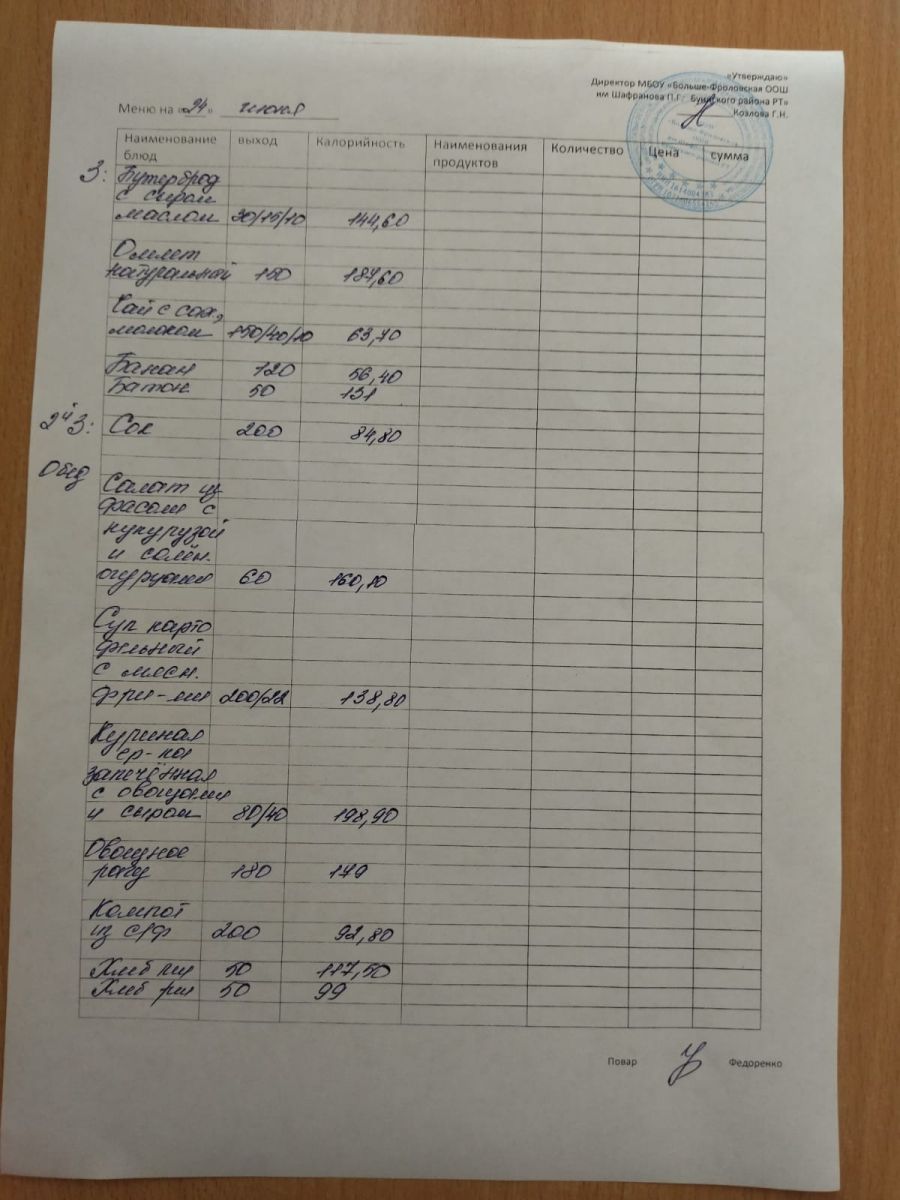 «Утверждаю»
Директор МБОУ «Больше-Фроловская ООШ
им Шафранова П.Г. Буинского района РТ»
Козлова Г.Н.
Меню на «24» июня
Наименование блюд выход Калорийность Наименования продуктов Количество Цена сумма
З: Бутерброд
с сыром
маслом 30/15/10 144,60
Омлет
натуральной 150 187,60
Чай с сах,
молоком 150/40/10 63,70
Банан 120 56,40
Батон 50 131
2й З: Сок 200 84,80
Обед
Салат из
фасоли с
кукурузой
и солён.
огурцами 60 160,10
Суп карто
фельный
с мясн.
фри-ми 200/22 138,80
Куриная
гр-ка
запечённая
с овощами
и сыром 80/40 198,90
Овощное
рагу 180 179
Компот
из с/ф 200 92,80
Хлеб пш 50 117,50
Хлеб рж 50 99
Повар Федоренко